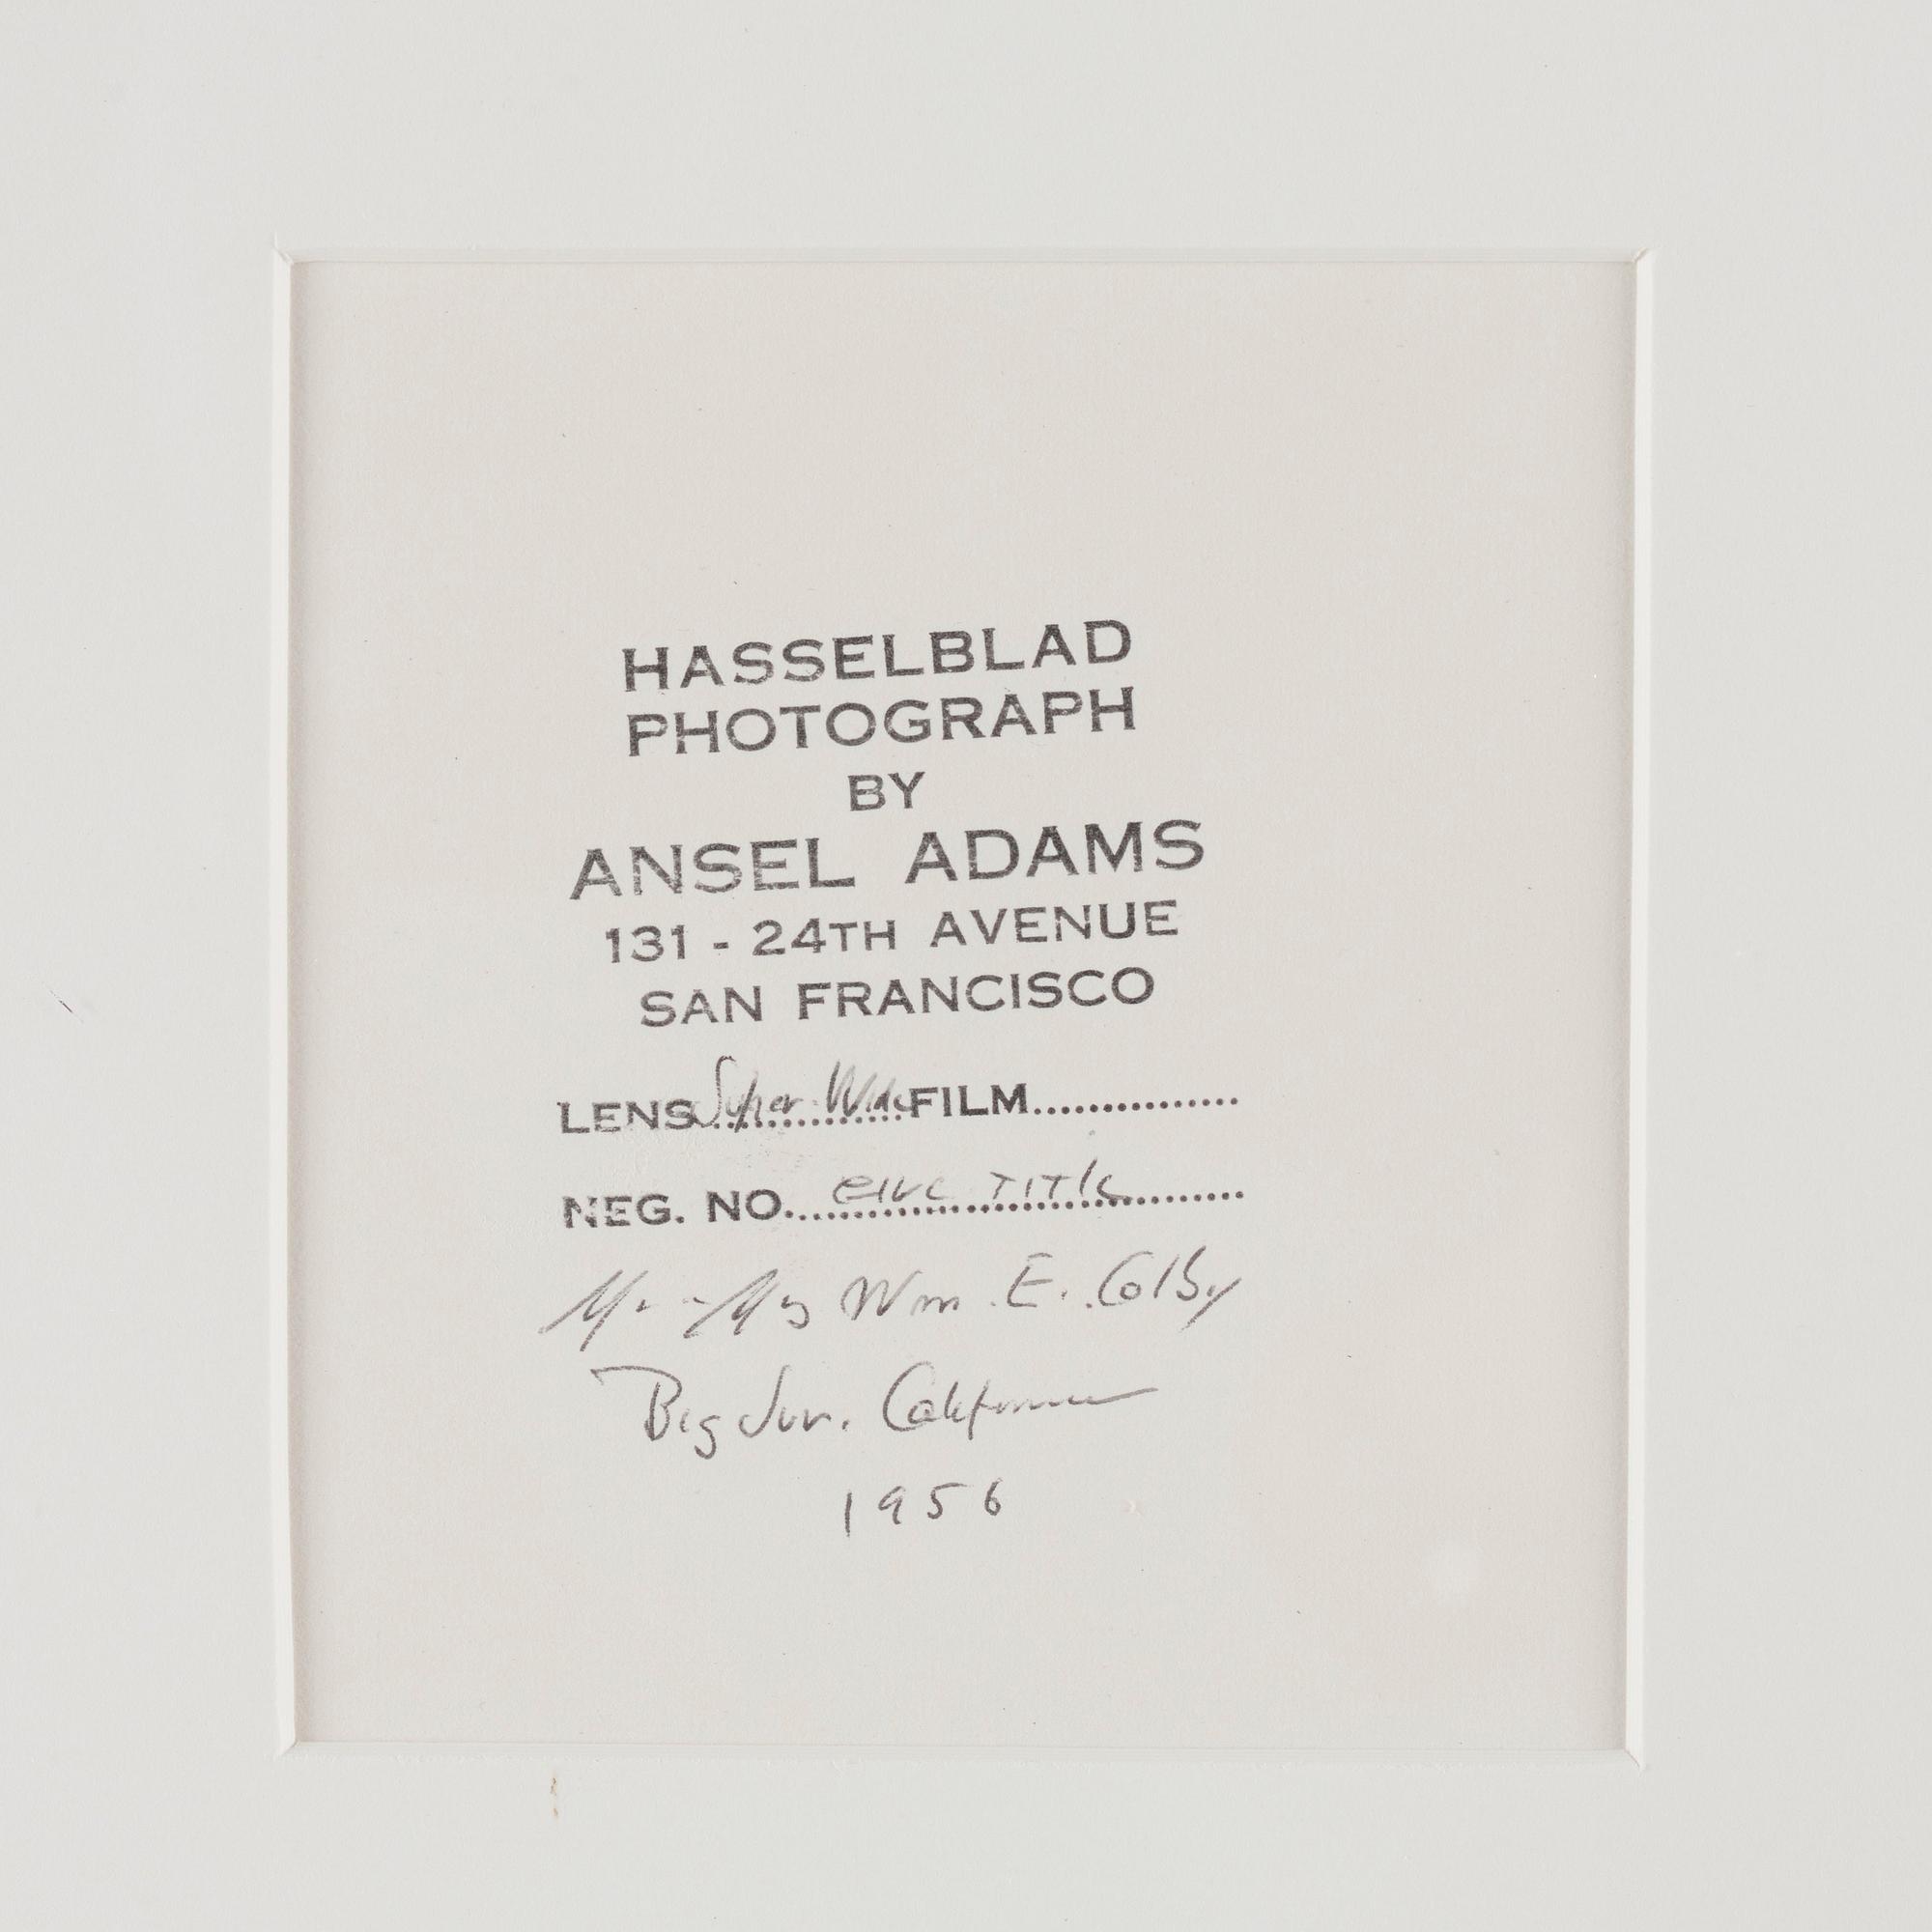 HASSELBLAD
PHOTOGRAPH
BY
ANSEL ADAMS
131 - 24TH AVENUE
SAN FRANCISCO
LENS Super-Wide FILM...............
NEG. NO. Title
Mr Wm. E. Colby
Big Sur. California
1956